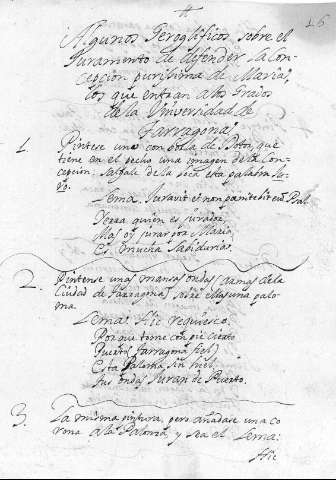 16
Algunos Geroglificos, sobre el
Juramento de defender la Con-
cepcion purissima de Maria,
los que entran a los Grados
de la Universidad de
Tarragona.
1. Pintese uno con borla de Dotor, que
tiene en el pecho una imagen de la Con-
cepcion. Salgale de la boca esta palabra Ju-
ro.
Lema. Juravit et non panitebit eum Psal.
quien es jurador,
Mas el jurar por Maria
Es mucha Sabiduria.
2. Pintense unas mansas ondas de la
Ciudad de Tarragona, sobre ellas una palo-
ma
Lema. Hic requiesco.
Por que tome con pie cierto
Puerto (Tarragona fiel)
Esta Paloma sin
Sus ondas Juran de Puerto.
3. La misma pintura, pero añadase una co-
rona a la Paloma, y sea el Lema:
Hic